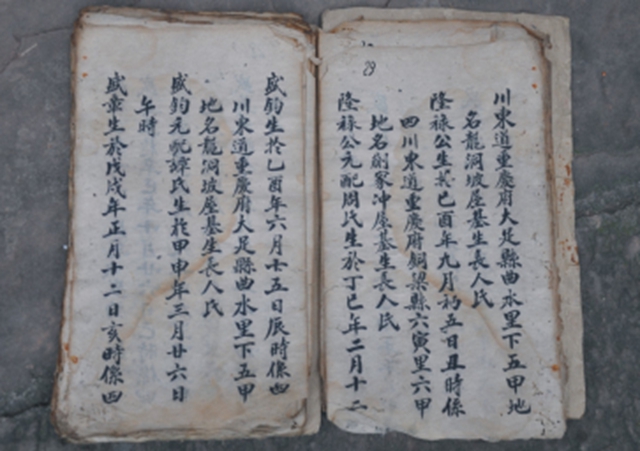 29
川東道重慶府大足縣曲水里下五甲地
名龍洞坡屋基生長人氏
隆祿公生於己酉年九月初五日丑時係
四川東道重慶府銅梁縣六寅里六甲
地名劍家沖屋基生長人氏
隆祿公元配周氏生於丁巳年二月十二
盛鈞生於乙酉年六月十五日辰時係四
川東道重慶府大足縣曲水里下五甲
地名龍洞坡屋基生長人氏
盛鈞元配譚氏生於甲申年三月廿六日
午時
盛章生於戊戌年正月十二日亥時係四